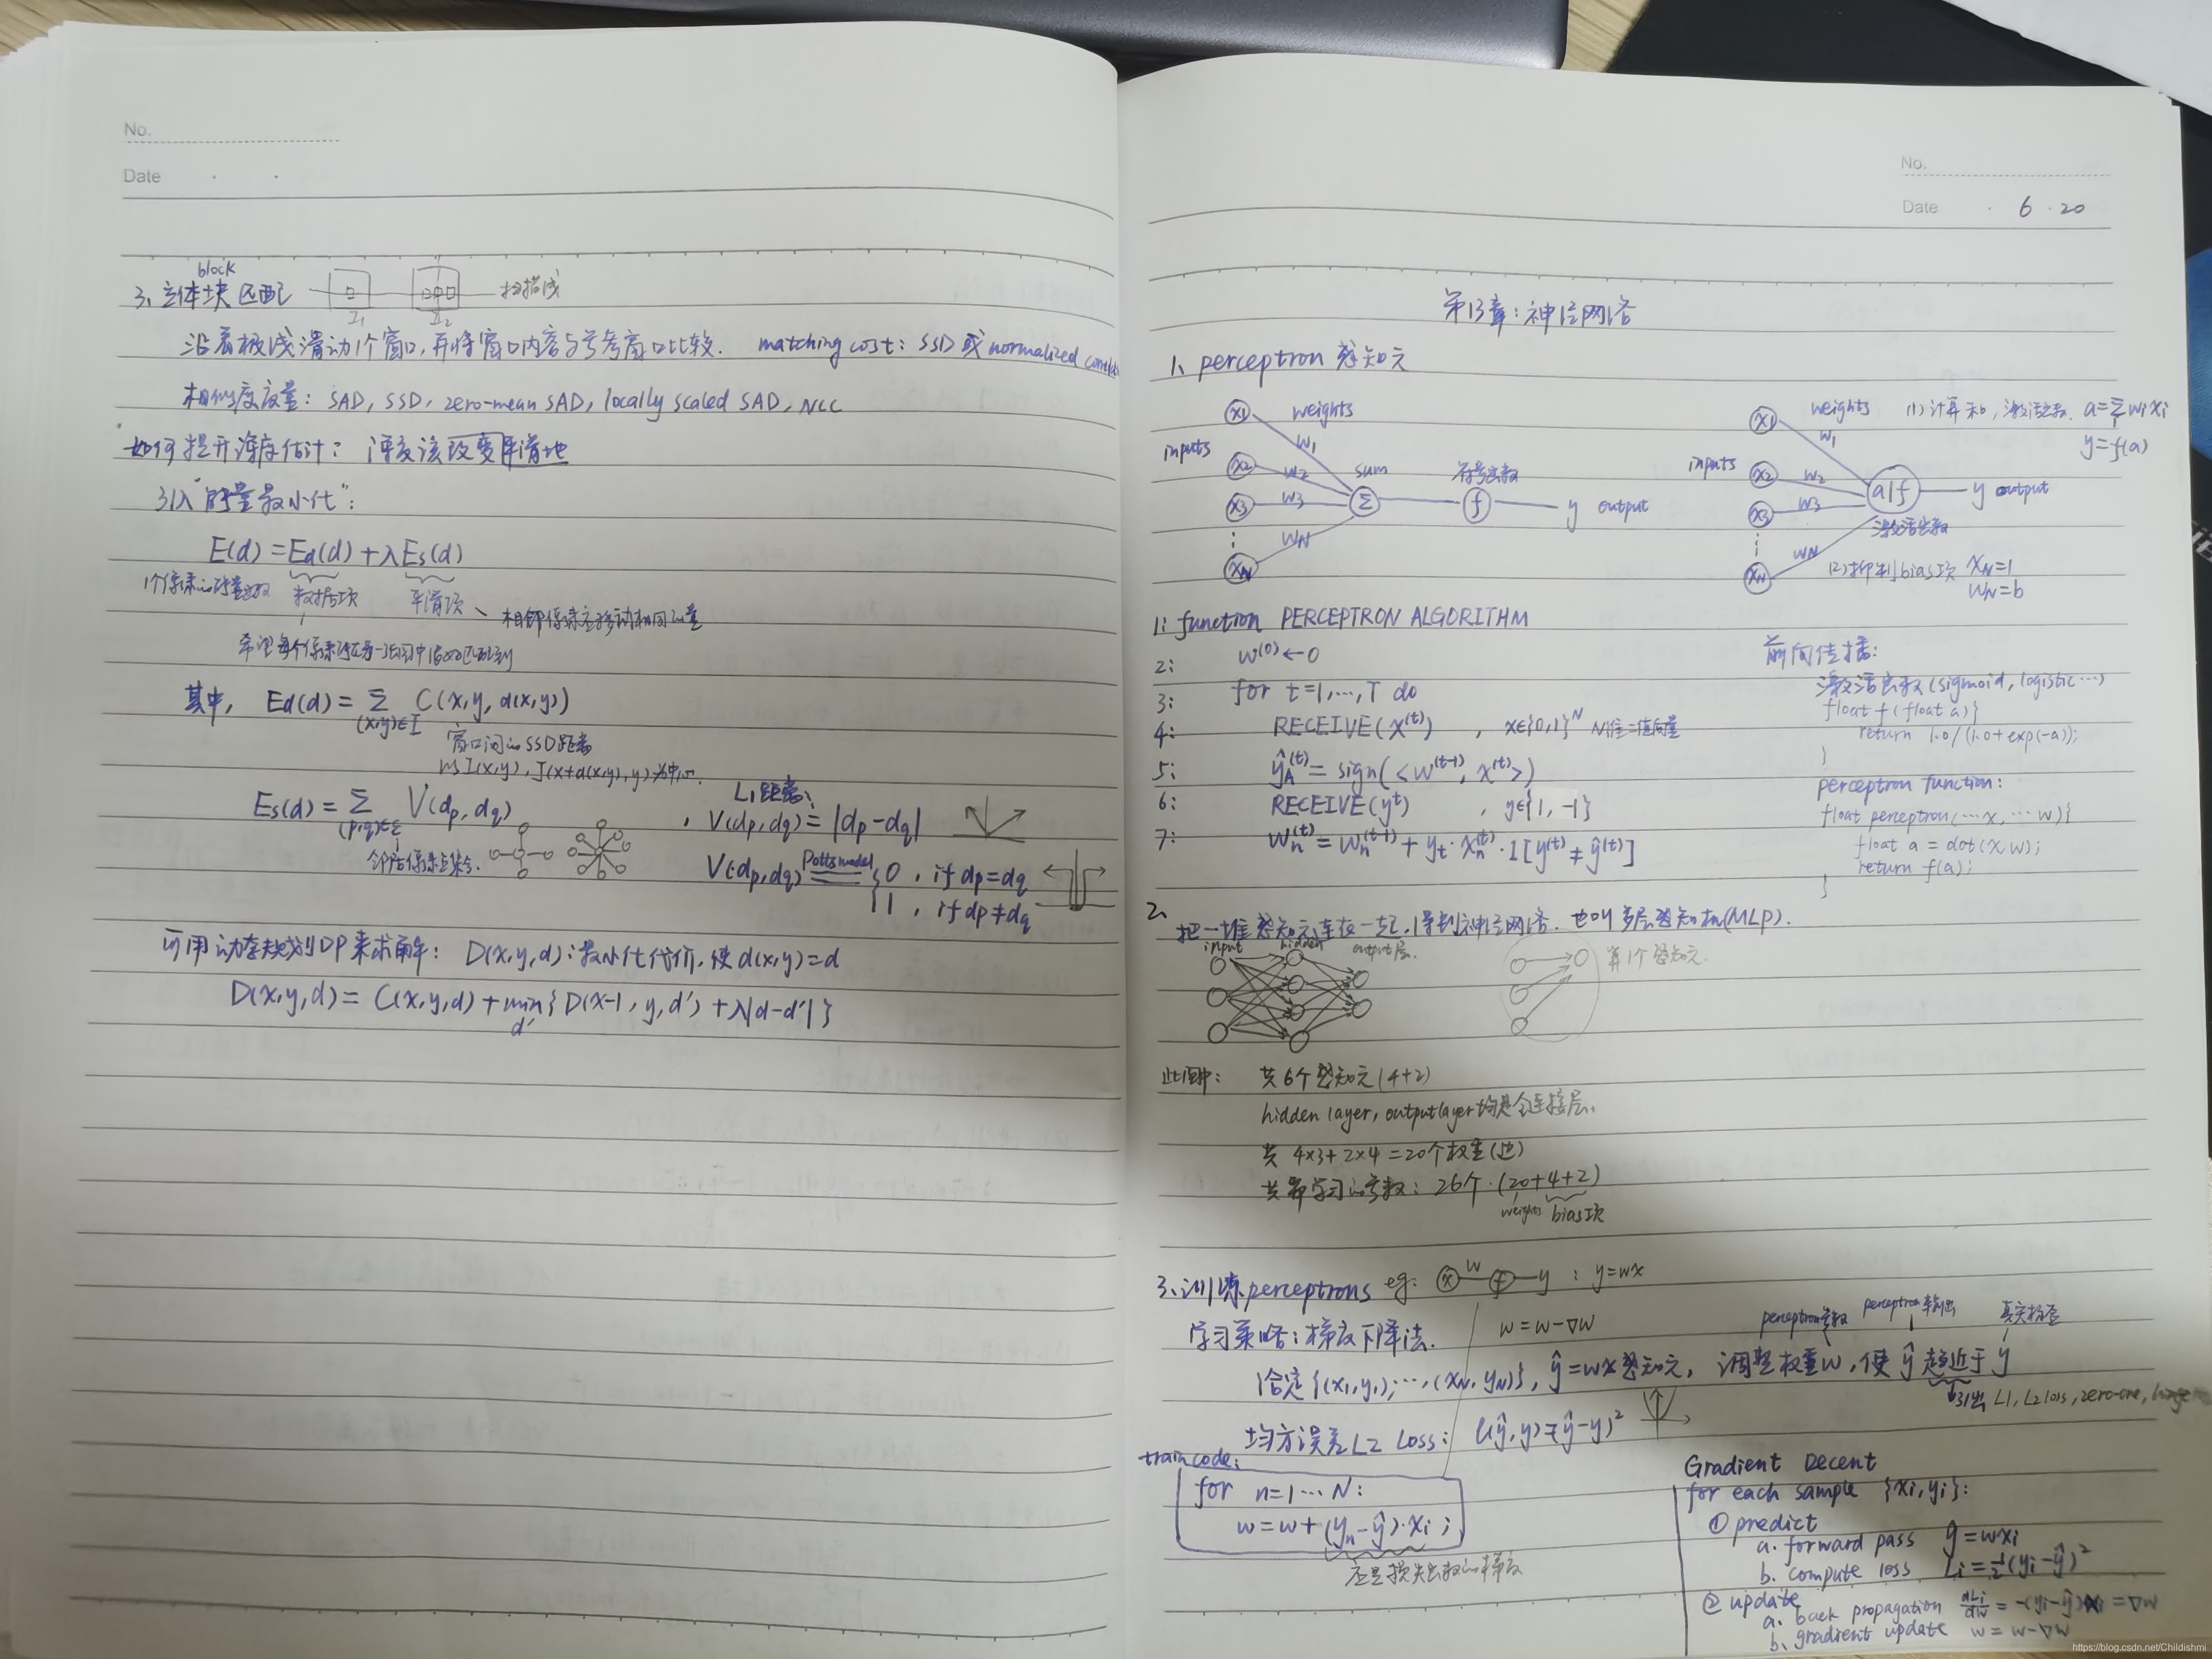 No.
Date
block
3、立体块匹配
扫描线
I1 I2
沿着极线滑动1个窗口,再将窗口内容与参考窗口比较. matching cost: SSD 或 normalized
相似度度量: SAD, SSD, zero-mean SAD, locally scaled SAD, NCC
如何提升深度估计: 深度该改变平滑地
引入"能量最小化":
E(d) = Ed(d) + λEs(d)
数据项 平滑项 相邻像素应移动相同的量
希望每个像素
其中, Ed(d) = Σ C(x,y,d(x,y))
(x,y)∈I
窗口间的SSD距离
以I(x,y), J(x+d(x,y),y)为中心.
L1距离:
Es(d) = Σ V(dp,dq) , V(dp,dq) = |dp-dq|
(p,q)∈ε
邻居像素
V(dp,dq) Potts model = { 0 , if dp=dq
1 , if dp≠dq
可用动态规划DP来求解: D(x,y,d):最小化代价,使d(x,y)=d
D(x,y,d) = C(x,y,d) + min{ D(x-1, y, d') + λ|d-d'| }
d'
No.
Date 6 · 20
第13章:神经网络
1、perceptron 感知元
x1 weights w1
inputs x2 w2 sum 符号函数
x3 w3 Σ f y output
xN wN
x1 weights w1 (1)计算和,激活函数. a=Σwixi
y=f(a)
inputs x2 w2 a|f y output
x3 w3 激活函数
xN wN (2)抑制bias项 xN=1
wN=b
1: function PERCEPTRON ALGORITHM
2: w(0) ← 0
3: for t=1,…,T do
4: RECEIVE(x(t)) , x∈{0,1}N N位二值向量
5: ŷA(t) = sign(<w(t-1), x(t)>)
6: RECEIVE(yt) , y∈{1, -1}
7: wn(t) = wn(t-1) + yt·xn(t)·1[y(t)≠ŷ(t)]
前向传播:
激活函数(sigmoid, logistic…)
float f(float a){
return 1.0/(1.0+exp(-a));
}
perceptron function:
float perceptron(…x, …w){
float a = dot(x,w);
return f(a);
}
2、把一堆感知元连在一起,得到神经网络. 也叫多层感知机(MLP).
input hidden output层.
算1个感知元.
此图中: 共6个感知元(4+2)
hidden layer, output layer均是全连接层.
共 4×3+2×4=20个权重(边)
共需学习的参数: 26个.(20+4+2)
weights bias项
3、训练perceptrons eg: x w f y : y=wx
学习策略:梯度下降法. w=w-∇w
perceptron参数 perceptron输出 真实标签
给定{(x1,y1),…,(xN,yN)}, ŷ=wx感知元, 调整权重w,使ŷ趋近于y
引出 L1, L2 loss, zero-one,
均方误差L2 Loss: l(ŷ,y)=(ŷ-y)2
train code:
for n=1…N:
w=w+(yn-ŷ)·xi;
应是损失函数的梯度
Gradient Decent
for each sample {xi,yi}:
① predict
a. forward pass ŷ=wxi
b. compute loss Li=½(yi-ŷ)2
② update
a. back propagation dLi/dw = -(yi-ŷ)xi = ∇w
b. gradient update w=w-∇w
https://blog.csdn.net/Childishmi